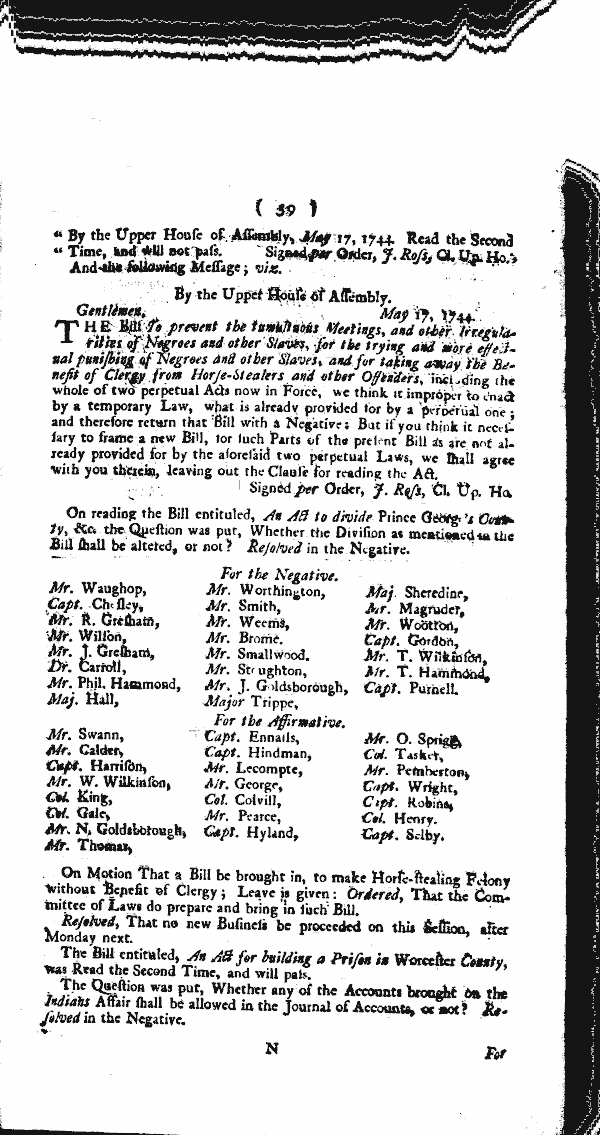 ( 39 )
“ By the Upper Houſe of Aſſembly, May 17, 1744. Read the Second
“ Time, and will not paſs. Signed per Order, J. Roſs, Cl. Up. Ho.
And the following Meſſage; viz.
By the Upper Houſe of Aſſembly.
Gentlemen, May 17, 1744.
THE Bill to prevent the tumultuous Meetings, and other Irregula-
rities of Negroes and other Slaves, for the trying and more effect-
ual puniſhing of Negroes and other Slaves, and for taking away the Be-
nefit of Clergy from Horſe-Stealers and other Offenders, including the
whole of two perpetual Acts now in Force, we think it improper to enact
by a temporary Law, what is already provided for by a perpetual one;
and therefore return that Bill with a Negative: But if you think it neceſ-
ſary to frame a new Bill, for ſuch Parts of the preſent Bill as are not al-
ready provided for by the aforeſaid two perpetual Laws, we ſhall agree
with you therein, leaving out the Clauſe for reading the Act.
Signed per Order, J. Roſs, Cl. Up. Ho.
On reading the Bill entituled, An Act to divide Prince George's Coun-
ty, &c. the Queſtion was put, Whether the Diviſion as mentioned in the
Bill ſhall be altered, or not? Reſolved in the Negative.
For the Negative.
Mr. Waughop, Mr. Worthington, Maj. Sheredine,
Capt. Cheſley, Mr. Smith, Mr. Magruder,
Mr. R. Greſham, Mr. Weems, Mr. Wootton,
Mr. Wilſon, Mr. Brome. Capt. Gordon,
Mr. J. Greſham, Mr. Smallwood. Mr. T. Wilkinſon,
Dr. Carroll, Mr. Stoughton, Mr. T. Hammond,
Mr. Phil. Hammond, Mr. J. Goldsborough, Capt. Purnell.
Maj. Hall, Major Trippe,
For the Affirmative.
Mr. Swann, Capt. Ennalls, Mr. O. Sprigg,
Mr. Calder, Capt. Hindman, Col. Tasker,
Capt. Harriſon, Mr. Lecompte, Mr. Pemberton,
Mr. W. Wilkinſon, Mr. George, Capt. Wright,
Col. King, Col. Colvill, Capt. Robins,
Col. Gale, Mr. Pearce, Col. Henry.
Mr. N. Goldsborough, Capt. Hyland, Capt. Selby.
Mr. Thomas,
On Motion That a Bill be brought in, to make Horſe-ſtealing Felony
without Benefit of Clergy; Leave is given: Ordered, That the Com-
mittee of Laws do prepare and bring in ſuch Bill.
Reſolved, That no new Buſineſs be proceeded on this Seſſion, after
Monday next.
The Bill entituled, An Act for building a Priſon in Worceſter County,
was Read the Second Time, and will paſs.
The Queſtion was put, Whether any of the Accounts brought on the
Indians Affair ſhall be allowed in the Journal of Accounts, or not? Re-
ſolved in the Negative.
N For